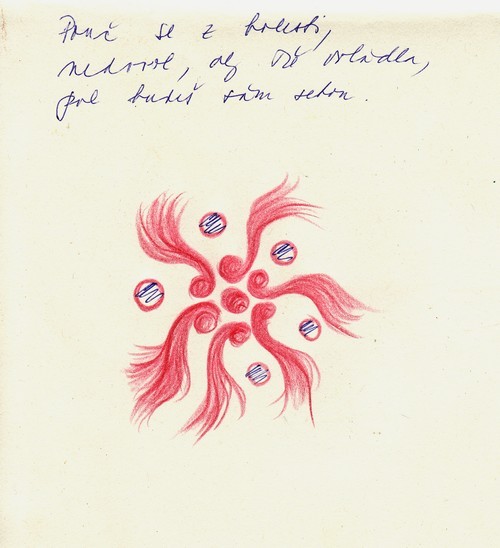 Pouč se z bolesti,
nedovol, aby Tě ovládla,
pak budeš sám sebou.